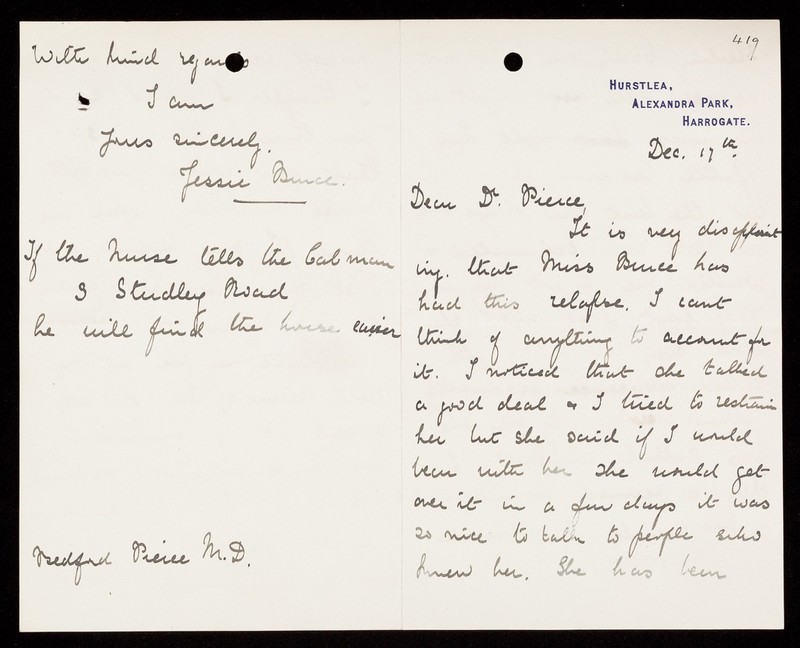 With kind regards
I am
Yours sincerely,
Jessie Bruce.
If the Nurse tells the Cabman
3 Studley Road
he will find the house easier
Bedford Pierce M.D.
419
HURSTLEA,
ALEXANDRA PARK,
HARROGATE.
Dec. 17th.
Dear Dr. Pierce,
It is very disappoint
ing. that Miss Bruce has
had this relapse. I cant
think of anything to account for
it. I noticed that she talked
a good deal & I tried to restrain
her but she said if I would
bear with her she would get
over it in a few days it was
so nice to talk to people who
knew her. She has been